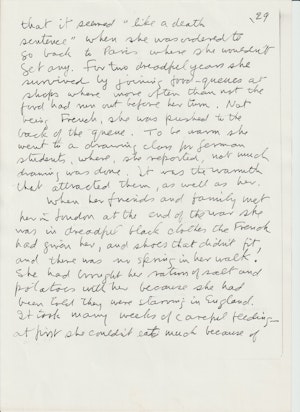 29
that it seemed "like a death
sentence" when she was ordered to
go back to Paris where she wouldn't
get any. For two dreadful years she
survived by joining food-queues at
shops where more often than not the
food had run out before her turn. Not
being French, she was pushed to the
back of the queue. To be warm she
went to a drawing class for German
students, where, she reported, not much
drawing was done. It was the warmth
that attracted them, as well as her.
When her friends and family met
her in London at the end of the war she
was in dreadful black clothes the French
had given her, and shoes that didn't fit,
and there was no spring in her walk.
She had brought her ration of salt and
potatoes with her because she had
been told they were starving in England.
It took many weeks of careful feeding—
at first she couldn't eat much because of